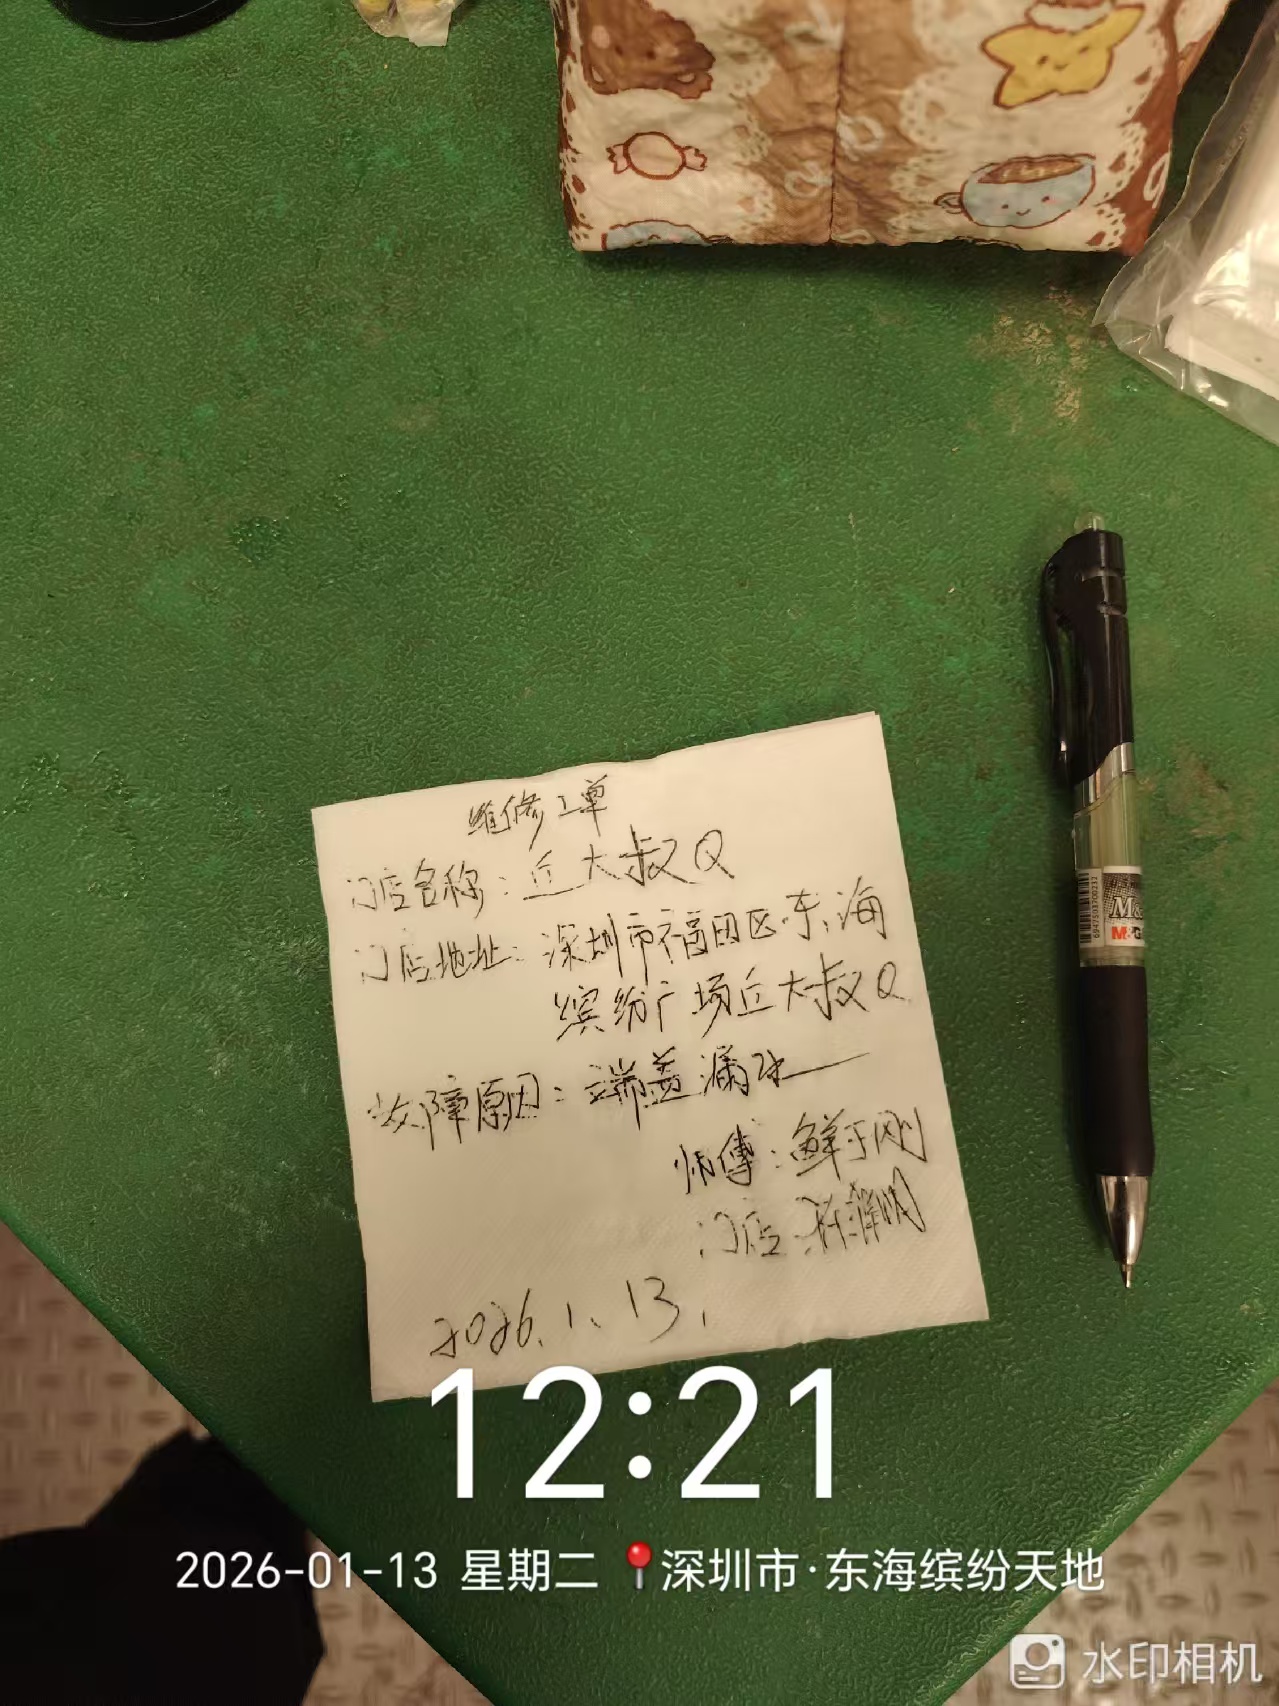 维修工单
门店名称：丘大叔Q
门店地址：深圳市福田区东海
缤纷广场丘大叔Q
故障原因：端盖漏水
师傅：鲜于刚
门店：
2026.1.13.
M&G
6947503700232
12:21
2026-01-13 星期二 深圳市·东海缤纷天地
水印相机